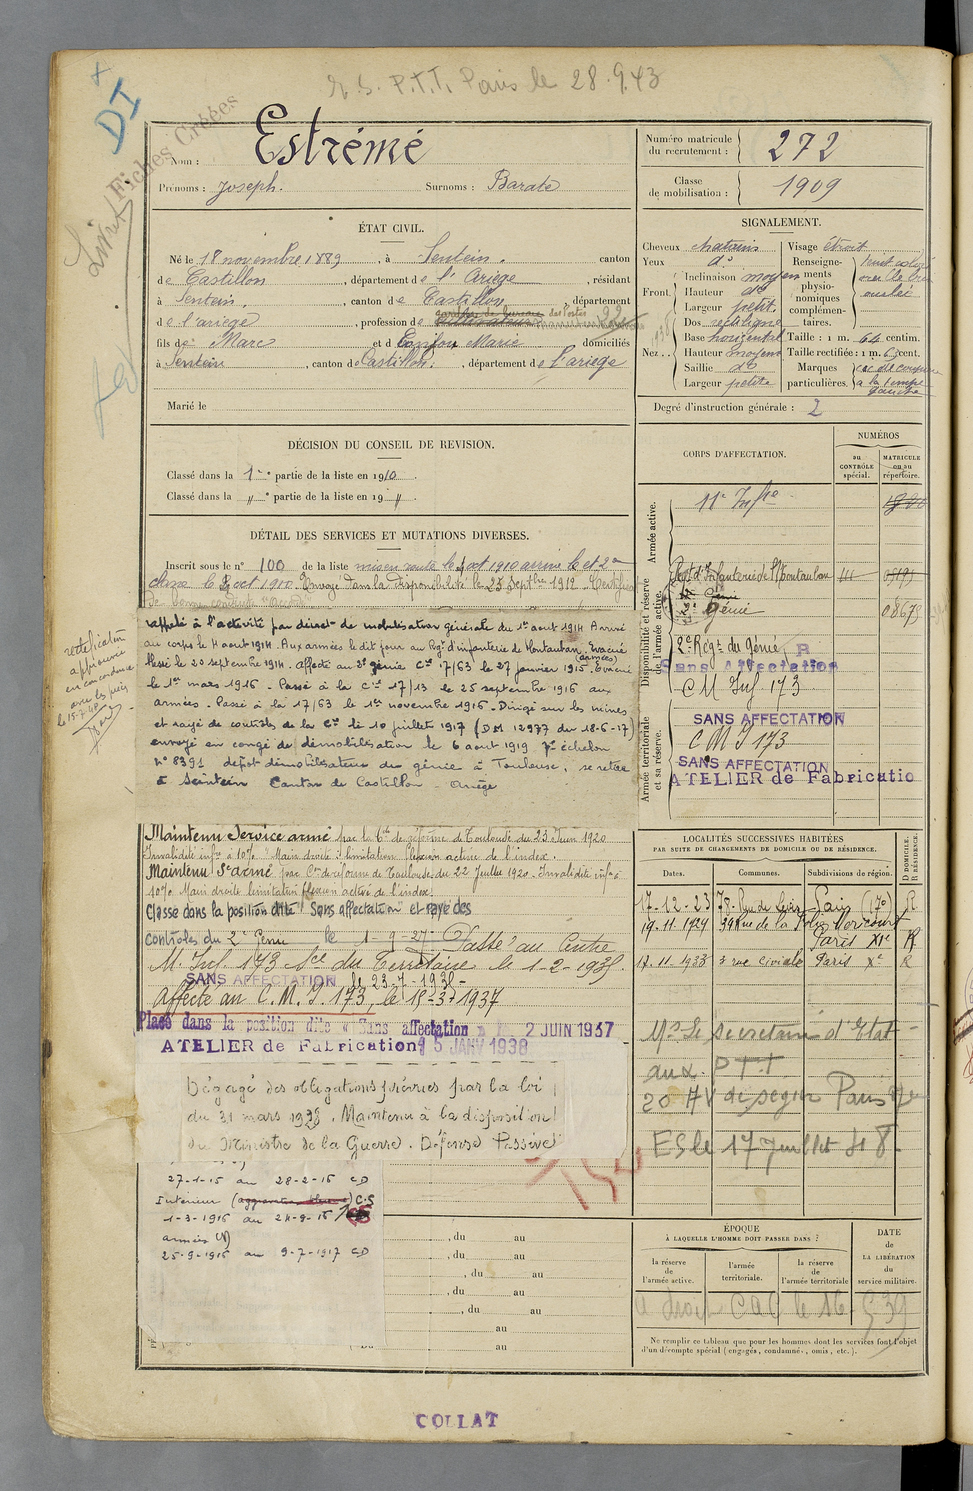 E.S. P.T.T. Paris le 28.9.43
DI
Fiches Créées
Nom : Estrémé
Prénoms : Joseph. Surnoms : Barate
Numéro matricule du recrutement : 272
Classe de mobilisation : 1909
ÉTAT CIVIL.
Né le 18 novembre 1889, à Sentein, canton
de Castillon, département de l'Ariège, résidant
à Sentein, canton de Castillon, département
de l'ariège, profession de
fils de Marc et d Marie domiciliés
à Sentein, canton de Castillon, département de l'ariège
Marié le
SIGNALEMENT.
Cheveux chatains
Yeux d°
Front. Inclinaison moyen
Hauteur d°
Largeur petit
Nez. Dos rectiligne
Base horizontal
Hauteur moyen
Saillie d°
Largeur petite
Visage étroit
Renseignements physionomiques complémentaires.
Taille : 1 m. 64 centim.
Taille rectifiée : 1 m. 65 cent.
Marques particulières. cic de coupure a la tempe gauche
Degré d'instruction générale : 2
DÉCISION DU CONSEIL DE REVISION.
Classé dans la 1re partie de la liste en 1910.
Classé dans la " e partie de la liste en 19 "
DÉTAIL DES SERVICES ET MUTATIONS DIVERSES.
Inscrit sous le n° 100 de la liste mis en route le 1 oct 1910 arrivé le et 2e
classe le 2 oct 1910. Envoyé dans la disponibilité le 25 Septbre 1912. Certificat
de bonne conduite accordé.
rappelé à l'activité par décret de mobilisation générale du 1er aout 1914 Arrivé
au corps le 4 aout 1914. Aux armées le dit jour au Regt d'infanterie de Montauban. Evacué
blessé le 20 septembre 1914. affecté au 2e génie Cie 17/63 le 27 janvier 1915 (armées). Evacué
le 1er mars 1916 - Passé à la Cie 17/13 le 25 septembre 1916 aux
armées. Passé à la 17/63 le 1er novembre 1916. Dirigé sur les mines
et rayé de contrôles de la Cie le 10 juillet 1917 (DM 12977 du 18-6-17)
envoyé en congé de démobilisation le 6 aout 1919 7e échelon
N° 8391 depot démobilisateur du génie à Toulouse, se retire
à Seintein Canton de Castillon - Ariège
rectification
approuvée
en concordance
avec les
le 15-7-48
Maintenu Service armé par la Con de réforme de Toulouse du 23 Juin 1920
Invalidité infre à 10% Main droite : limitation flexion active de l'index.
Maintenu St armé par Con de réforme de Toulouse du 22 Juillet 1920. Invalidité infre à
10% Main droite limitation flexion active de l'index.
Classé dans la position dite "Sans affectation" et rayé des
contrôles du 2e Génie le 1-9-27 - Passé au Centre
M. Inf. 173 Sce du Territoire le 1-2-1935.
SANS AFFECTATION le 23-7-1935-
Affecté au C.M.I. 173, le 15-3-1937
Placé dans la position dite « Sans affectation » 2 JUIN 1937
ATELIER de Fabrication 15 JANV 1938
Dégagé des obligations prévues par la loi
du 31 mars 1928. Maintenu à la disposition
du Ministre de la Guerre. Défense Passive
27-1-15 au 28-2-16 CD
Intérieur C.S
1-3-1916 au 24-9-16
armées
25-9-1916 au 9-7-1917 CD
, du au
, du au
, du au
, du au
, du au
au
au
CORPS D'AFFECTATION.
NUMÉROS
au CONTRÔLE spécial.
MATRICULE ou au répertoire.
Armée active.
11e Infrie
Disponibilité et réserve de l'armée active.
Regt d'Infanterie de Montauban
Génie
08673
2e Régt du Génie R
Sans Affectation
Armée territoriale et sa réserve.
CM Inf. 173
SANS AFFECTATION
C M I 173
SANS AFFECTATION
ATELIER de Fabricatio
LOCALITÉS SUCCESSIVES HABITÉES
PAR SUITE DE CHANGEMENTS DE DOMICILE OU DE RÉSIDENCE.
Dates. Communes. Subdivisions de région. D DOMICILE. R RÉSIDENCE.
17-12-23 78. Rue de Paris (17e) R
19-11-1924 39 Rue de la Folie Méricourt Paris XIe R
17.11.1933 3 rue Civiale Paris Xe R
Mr le secretaire d'Etat
aux PTT
20 AV de Segur Paris 7e
ES le 17 Juillet 48
ÉPOQUE
À LAQUELLE L'HOMME DOIT PASSER DANS :
la réserve de l'armée active.
l'armée territoriale.
la réserve de l'armée territoriale
DATE de LA LIBÉRATION du service militaire.
a droit CAC le 16-5 39
Ne remplir ce tableau que pour les hommes dont les services font l'objet
d'un décompte spécial (engagés, condamnés, omis, etc.).
COLLAT